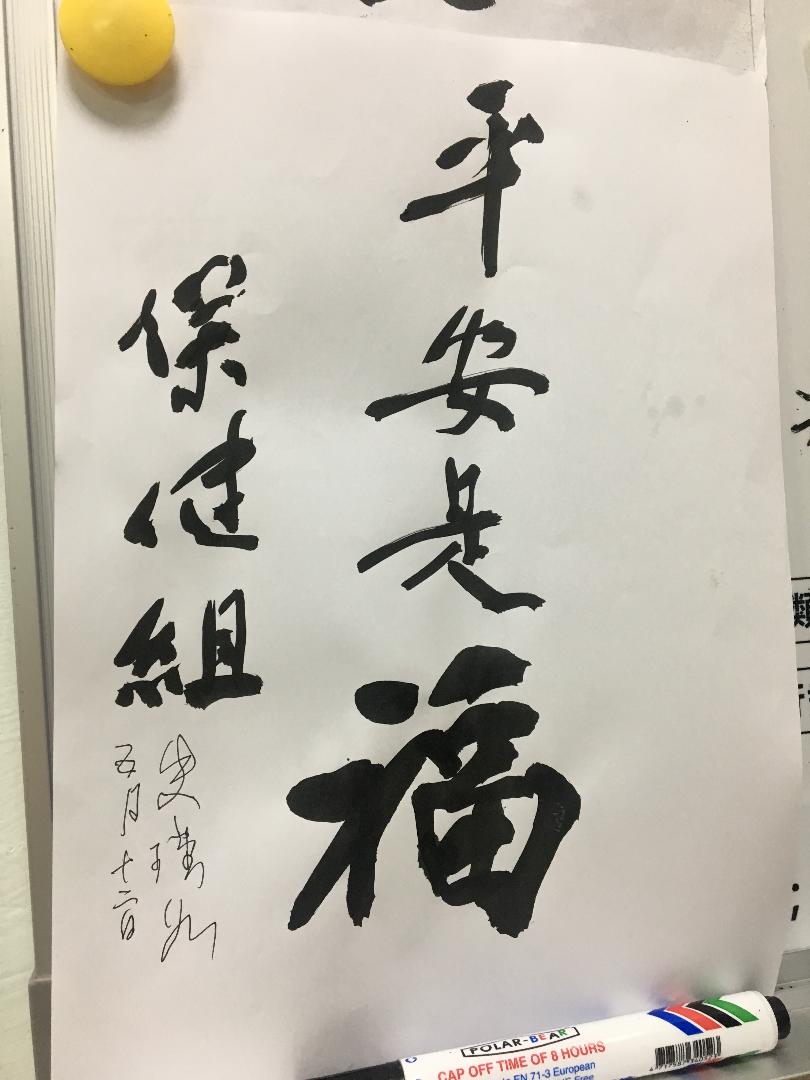 平安是福
保健組
五月十二日
POLAR-BEAR
CAP OFF TIME OF 8 HOURS
EN 71-3 European